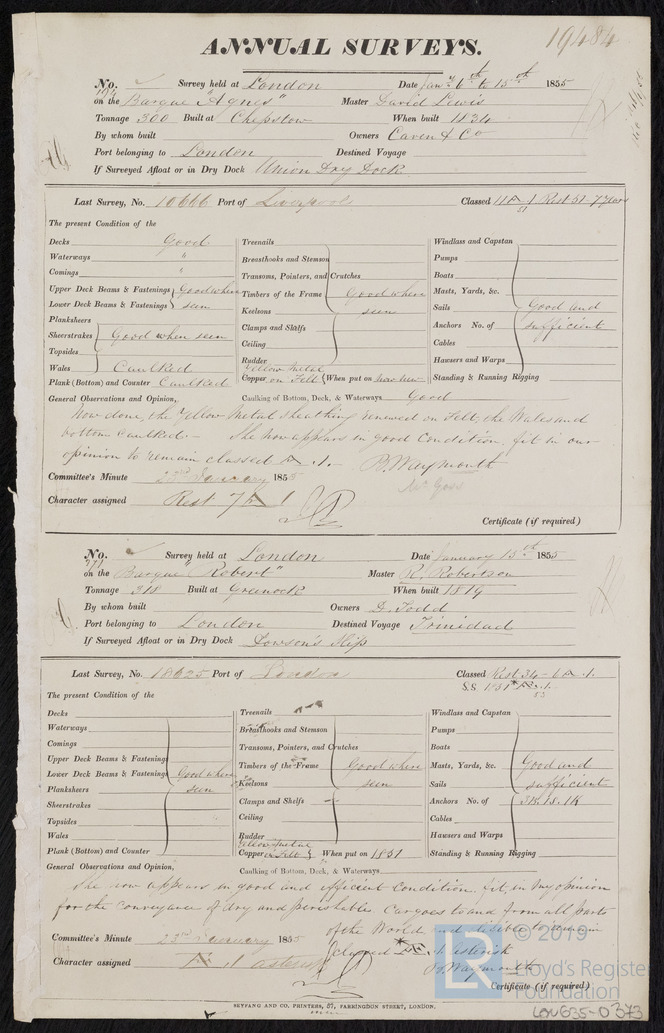 19484
ANNUAL SURVEYS.
No. Survey held at London Date Jany 6th to 15th 1855
on the Barque "Agnes" Master David Lewis
Tonnage 300 Built at Chepstow When built 1834
By whom built Owners Caven & Co
Port belonging to London Destined Voyage
If Surveyed Afloat or in Dry Dock Union Dry Dock
Last Survey, No. 10666 Port of Liverpool Classed Rest 51 7 years
The present Condition of the
Decks Good
Waterways "
Comings "
Upper Deck Beams & Fastenings Good where
Lower Deck Beams & Fastenings seen
Planksheers
Sheerstrakes Good when seen
Topsides
Wales Caulked
Plank (Bottom) and Counter Caulked
Treenails
Breasthooks and Stemson
Transoms, Pointers, and Crutches
Timbers of the Frame Good where
Keelsons seen
Clamps and Shelfs
Ceiling
Rudder
Yellow Metal
Copper on Felt When put on Now new
Windlass and Capstan
Pumps
Boats
Masts, Yards, &c.
Sails Good and
Anchors No. of sufficient
Cables
Hawsers and Warps
Standing & Running Rigging
General Observations and Opinion, Caulking of Bottom, Deck, & Waterways Good
Now done, the Yellow Metal sheathing renewed on Felt, the Wales and
bottom Caulked. She now appears in good Condition, fit in our
opinion to remain classed A. 1. B. Waymouth
Mr Goss
Committee's Minute 23rd January 1855
Character assigned Rest 7 A 1
Certificate (if required)
No. 771 Survey held at London Date January 15th 1855
on the Barque "Robert" Master R. Robertson
Tonnage 318 Built at Greenock When built 1819
By whom built Owners D. Todd
Port belonging to London Destined Voyage Trinidad
If Surveyed Afloat or in Dry Dock Lowson's Slip
Last Survey, No. 18625 Port of London Classed Rest 34
S.S. 1851
The present Condition of the
Decks
Waterways
Comings
Upper Deck Beams & Fastenings
Lower Deck Beams & Fastenings Good where
Planksheers seen
Sheerstrakes
Topsides
Wales
Plank (Bottom) and Counter
Treenails
Breasthooks and Stemson
Transoms, Pointers, and Crutches
Timbers of the Frame Good where
Keelsons seen
Clamps and Shelfs
Ceiling
Rudder
Yellow Metal
Copper on Felt When put on 1851
Windlass and Capstan
Pumps
Boats
Masts, Yards, &c. Good and
Sails sufficient
Anchors No. of 3B. 1S. 1K
Cables
Hawsers and Warps
Standing & Running Rigging
General Observations and Opinion, Caulking of Bottom, Deck, & Waterways
She now appears in good and efficient Condition, fit in my opinion
for the conveyance of dry and perishable Cargoes to and from all parts
of the World and eligible to remain
classed Asterisk
B. Waymouth
Committee's Minute 23rd January 1855
Character assigned 1 asterisk
Certificate (if required)
SEYFANG AND CO. PRINTERS, 57, FARRINGDON STREET, LONDON.
© 2019
LR Lloyd's Register
Foundation
LON635-0373